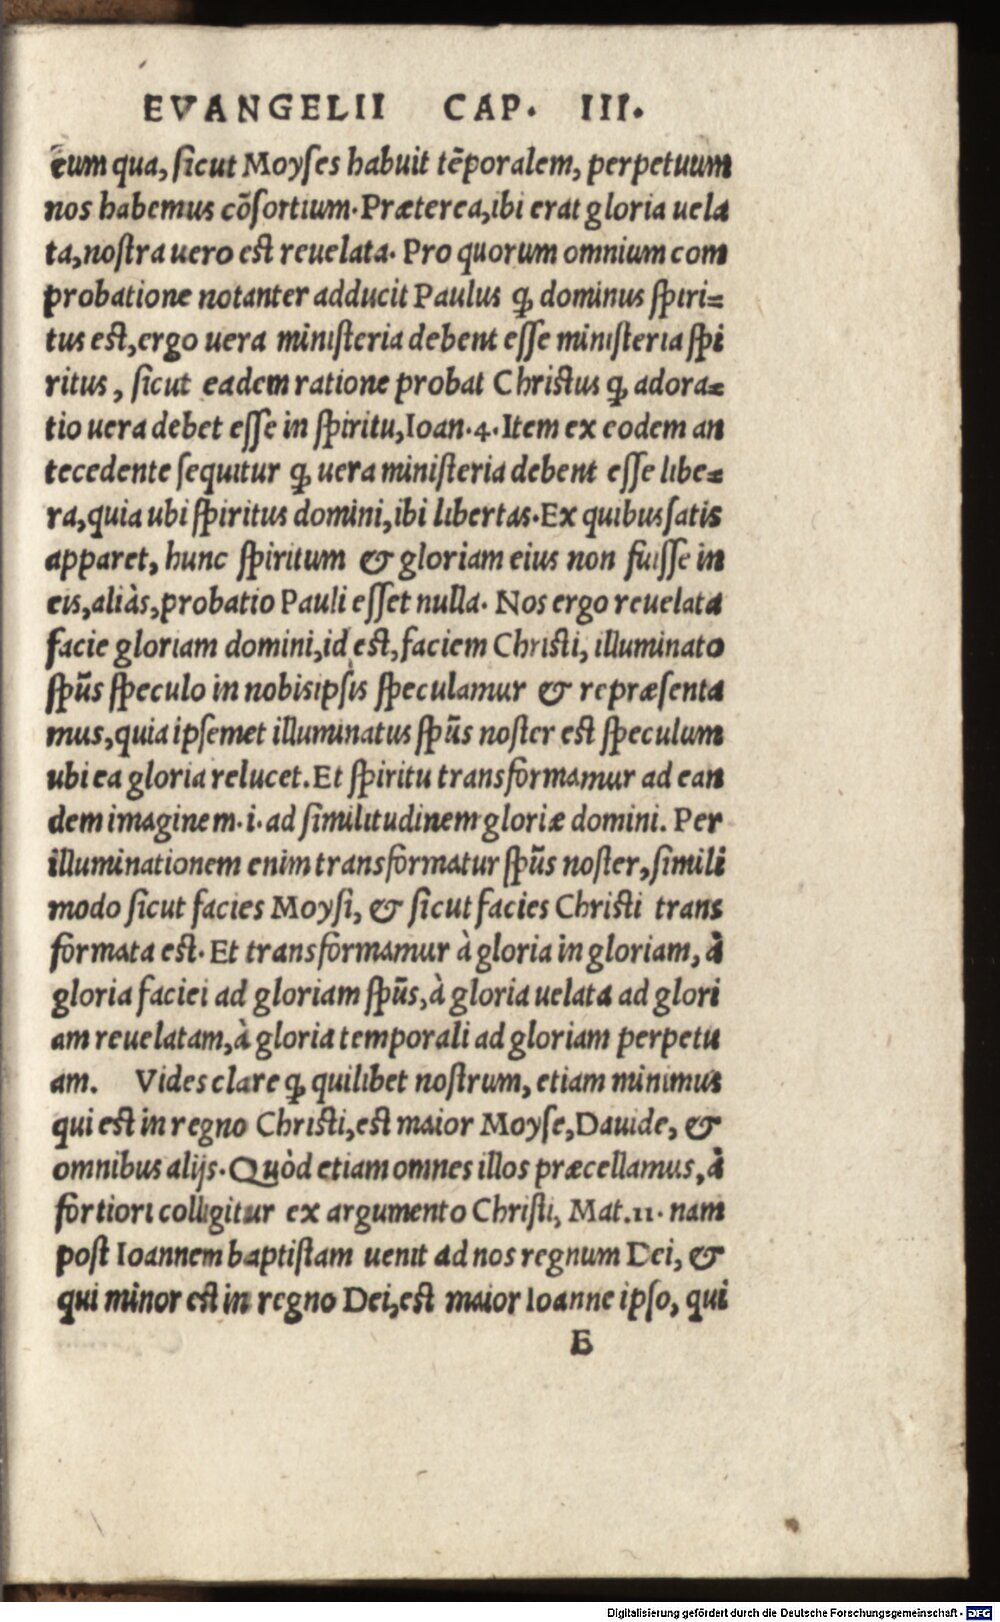 EVANGELII CAP. III.
cum qua, sicut Moyses habuit tẽporalem, perpetuum
nos habemus cõsortium. Præterea, ibi erat gloria uela
ta, nostra uero est reuelata. Pro quorum omnium com
probatione notanter adducit Paulus ꝙ dominus spiri=
tus est, ergo uera ministeria debent esse ministeria spi
ritus, sicut eadem ratione probat Christus ꝙ adora=
tio uera debet esse in spiritu, Ioan. 4. Item ex eodem an
tecedente sequitur ꝙ uera ministeria debent esse libe=
ra, quia ubi spiritus domini, ibi libertas. Ex quibus satis
apparet, hunc spiritum & gloriam eius non fuisse in
eis, aliàs, probatio Pauli esset nulla. Nos ergo reuelata
facie gloriam domini, id est, faciem Christi, illuminato
spũs speculo in nobisipsis speculamur & repræsenta
mus, quia ipsemet illuminatus spũs noster est speculum
ubi ea gloria relucet. Et spiritu transformamur ad ean
dem imaginem .i. ad similitudinem gloriæ domini. Per
illuminationem enim transformatur spũs noster, simili
modo sicut facies Moysi, & sicut facies Christi trans
formata est. Et transformamur à gloria in gloriam, à
gloria faciei ad gloriam spũs, à gloria uelata ad glori
am reuelatam, à gloria temporali ad gloriam perpetu
am. Vides clare ꝙ quilibet nostrum, etiam minimus
qui est in regno Christi, est maior Moyse, Dauide, &
omnibus alijs. Quòd etiam omnes illos præcellamus, à
fortiori colligitur ex argumento Christi, Mat. 11. nam
post Ioannem baptistam uenit ad nos regnum Dei, &
qui minor est in regno Dei, est maior Ioanne ipso, qui
E
Digitalisierung gefördert durch die Deutsche Forschungsgemeinschaft - DFG